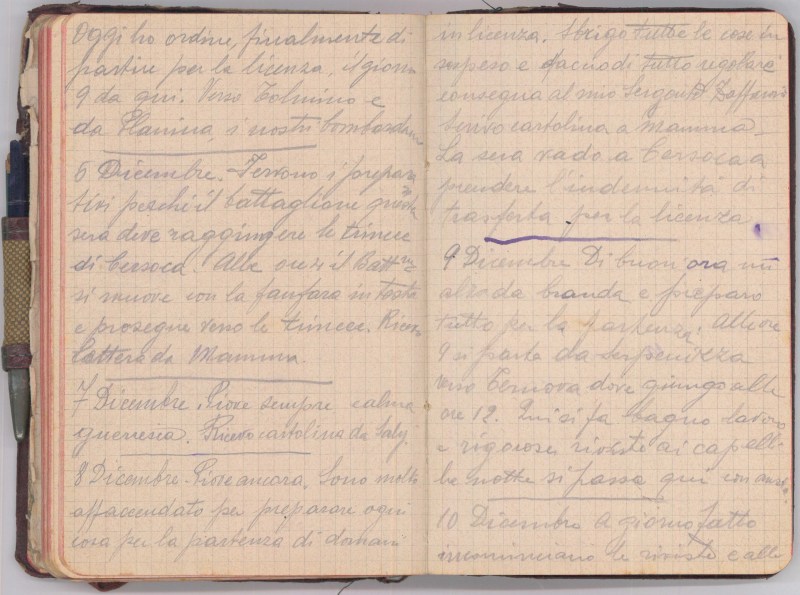 Oggi ho ordine, finalmente di
partire per la licenza, il giorno
9 da qui. Verso Tolmino e
da Planina, i nostri bombardano
6 Dicembre. Fervono i prepara
tivi perché il battaglione questa
sera deve raggiungere le trincee
di Cersoca. Alle ore 4 il Battne
si muove con la fanfara in testa
e prosegue verso le trincee. Ricevo
lettera da Mamma.
7 Dicembre. Piove sempre calma
guerresca. Ricevo cartolina da Saly.
8 Dicembre. Piove ancora. Sono molto
affaccendato per preparare ogni
cosa per la partenza di domani
in licenza. Sbrigo tutte le cose in
sospeso e faccio di tutto regolare
consegna al mio Sergente
Scrivo cartolina a Mamma.
La sera vado a Cersoca a
prendere l'indennità di
trasferta per la licenza
9 Dicembre Di buon'ora mi
alzo da branda e preparo
tutto per la partenza. Alle ore
9 si parte da Serpenizza
verso Ternova dove giungo alle
ore 12. Qui si fa bagno lavoro
e rigorose riviste ai capelli.
La notte si passa qui
10 Dicembre A giorno fatto
incominciano le riviste e alle